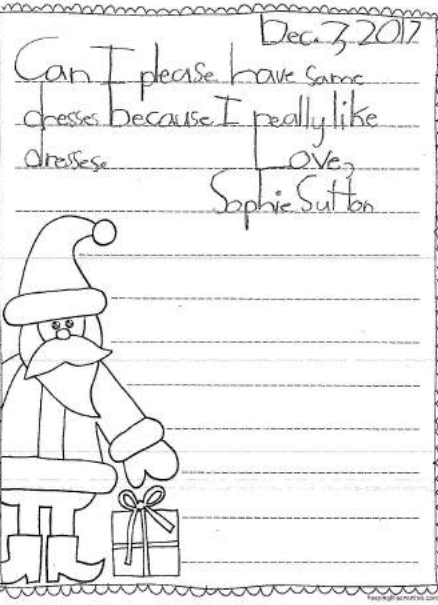 Dec. 7, 2017
Can I please have some
dresses because I really like
dresses.
Love,
Sophie Sutton